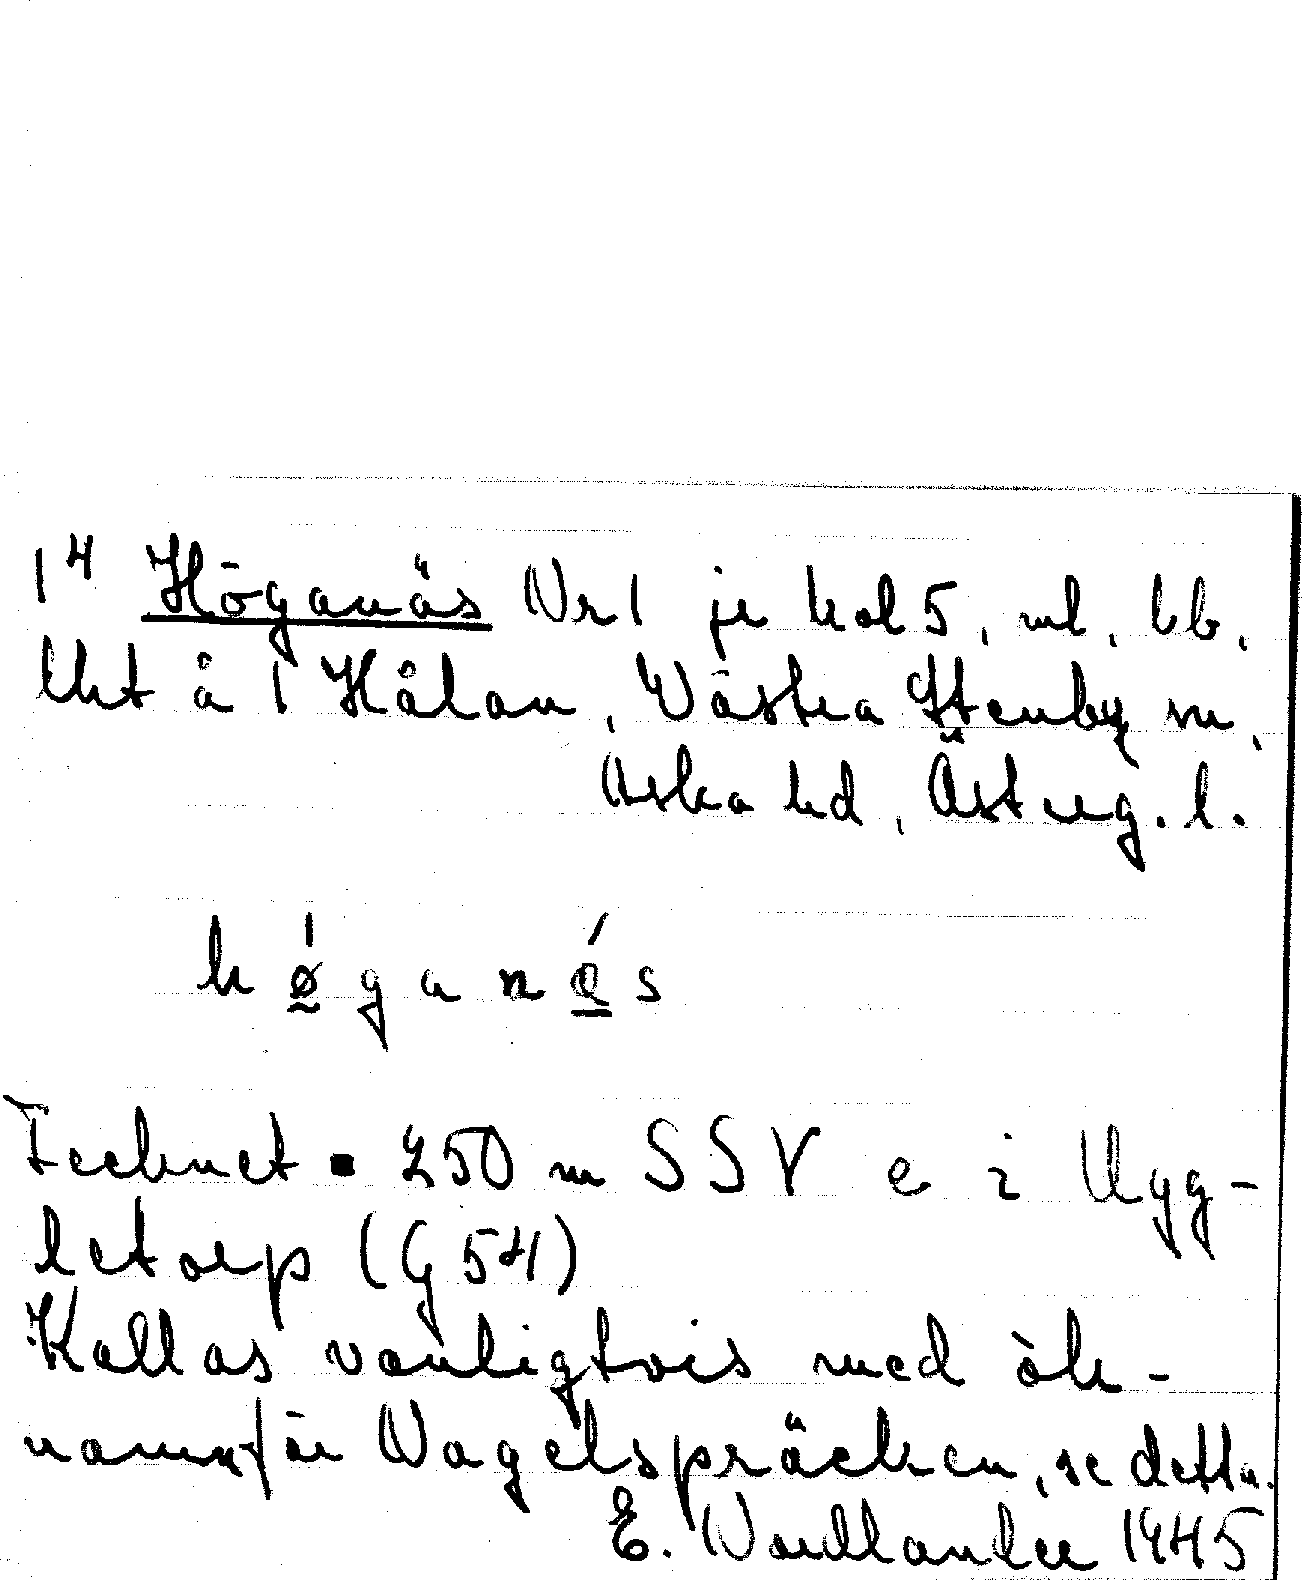 1⁴ Höganäs Nr 1 je kol 5, ml, bb,
lht å 1 Hålan, Västra Stenby sn,
Aska hd, Österg. l.
hǿganés
Tecknet ▪ 250 m SSV e i Ugg-
letorp (G 54)
Kallas vanligtvis med ök-
namn för Nagelspräcken, se detta.
E. Nordlander 1945